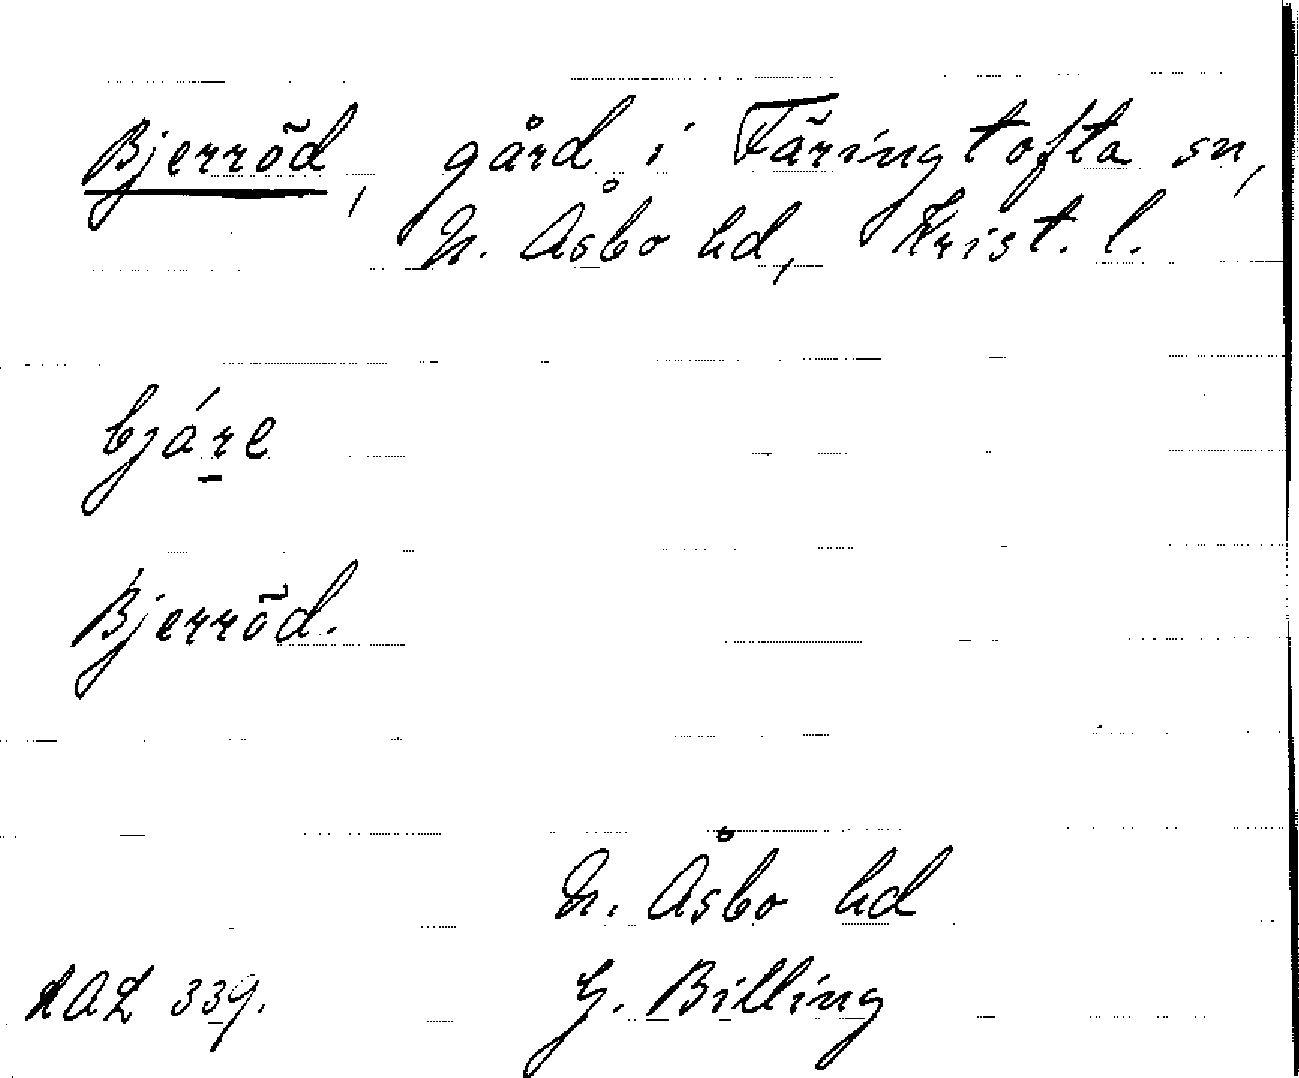 Bjerröd, gård i Färingtofta sn,
N. Åsbo hd, Krist. l.
bjáre
Bjerröd.
N. Åsbo hd
LAL 339. G. Billing